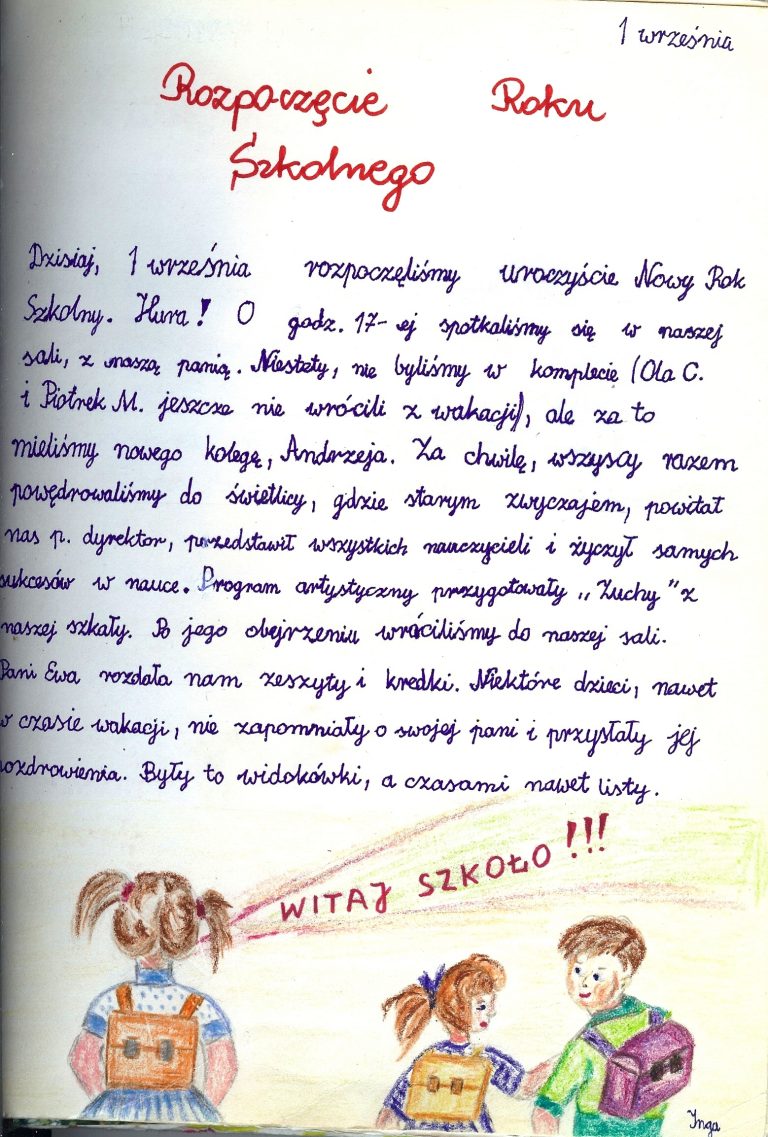 1 września
Rozpoczęcie Roku
Szkolnego
Dzisiaj, 1 września rozpoczęliśmy uroczyście Nowy Rok
Szkolny. Hura! O godz. 17-ej spotkaliśmy się w naszej
sali, z naszą panią. Niestety, nie byliśmy w komplecie (Ola C.
i Piotrek M. jeszcze nie wrócili z wakacji), ale za to
mieliśmy nowego kolegę, Andrzeja. Za chwilę, wszyscy razem
powędrowaliśmy do świetlicy, gdzie starym zwyczajem, powitał
nas p. dyrektor, przedstawił wszystkich nauczycieli i życzył samych
sukcesów w nauce. Program artystyczny przygotowały „Zuchy” z
naszej szkoły. Po jego obejrzeniu wróciliśmy do naszej sali.
Pani Ewa rozdała nam zeszyty i kredki. Niektóre dzieci, nawet
w czasie wakacji, nie zapomniały o swojej pani i przysłały jej
pozdrowienia. Były to widokówki, a czasami nawet listy.
WITAJ SZKOŁO!!!
Inga